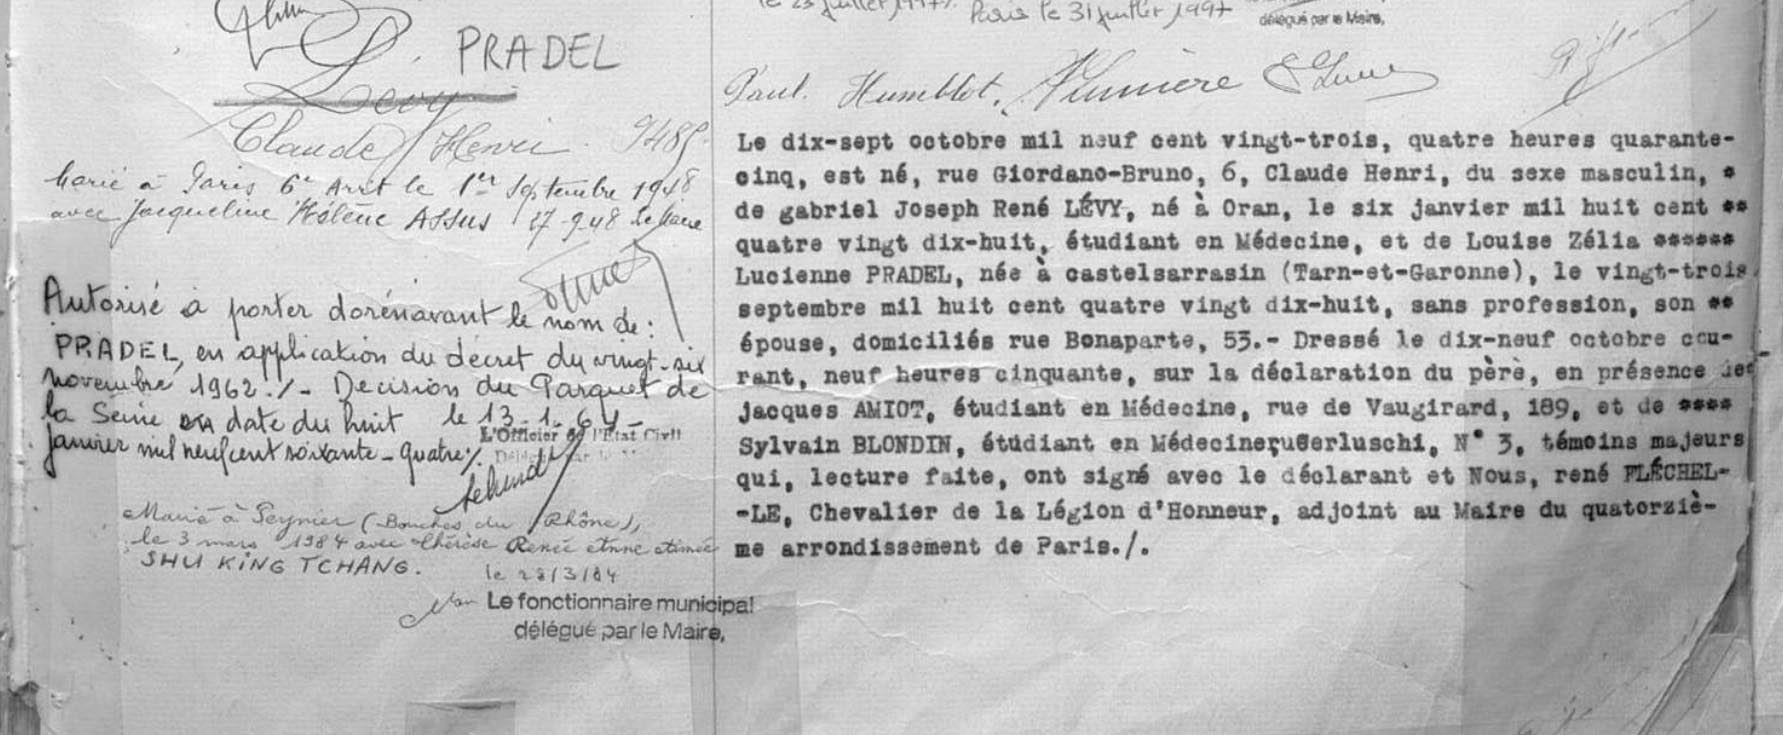 PRADEL
Levy
Claude Henri
Marié à Paris 6e Arrt le 1er Septembre 1948
avec Jacqueline Hélène Assus 17-9-48 Le Maire
Autorisé à porter dorénavant le nom de :
PRADEL, en application du décret du vingt-six
novembre 1962./- Décision du Parquet de
la Seine en date du huit le 13-1-64-
janvier mil neuf cent soixante-quatre./.
L'Officier de l'Etat Civil
Marié à Peynier (Bouches du Rhône),
le 3 mars 1984 avec Thérèse Renée Anne Aimée
SHU KING TCHANG.
le 28/3/84
Le fonctionnaire municipal
délégué par le Maire,
le 23 juillet 1997. Paris le 31 juillet 1997
délégué par le Maire,
Paul. Humblot.
Le dix-sept octobre mil neuf cent vingt-trois, quatre heures quarante-
cinq, est né, rue Giordano-Bruno, 6, Claude Henri, du sexe masculin, *
de gabriel Joseph René LÉVY, né à Oran, le six janvier mil huit cent **
quatre vingt dix-huit, étudiant en Médecine, et de Louise Zélia ******
Lucienne PRADEL, née à castelsarrasin (Tarn-et-Garonne), le vingt-trois
septembre mil huit cent quatre vingt dix-huit, sans profession, son **
épouse, domiciliés rue Bonaparte, 53.- Dressé le dix-neuf octobre cou-
rant, neuf heures cinquante, sur la déclaration du père, en présence de
jacques AMIOT, étudiant en Médecine, rue de Vaugirard, 189, et de ****
Sylvain BLONDIN, étudiant en Médecine, N° 3, témoins majeurs
qui, lecture faite, ont signé avec le déclarant et Nous, rené FLÉCHEL-
-LE, Chevalier de la Légion d'Honneur, adjoint au Maire du quatorziè-
me arrondissement de Paris./.